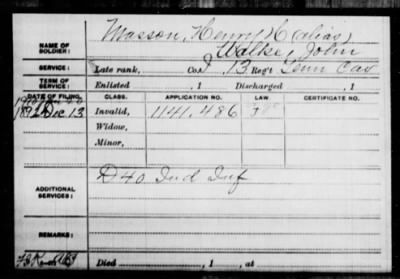 NAME OF SOLDIER: Masson, Henry H (alias)
Walke, John
SERVICE: Late rank, Co. I 13 Reg't Tenn Cav
TERM OF SERVICE: Enlisted , 1 Discharged , 1
DATE OF FILING. CLASS. APPLICATION NO. LAW. CERTIFICATE NO.
1892 Dec 13 Invalid, 1141.486
Widow,
Minor,
ADDITIONAL SERVICES: D 40 Ind Inf
REMARKS:
Died , 1 , at